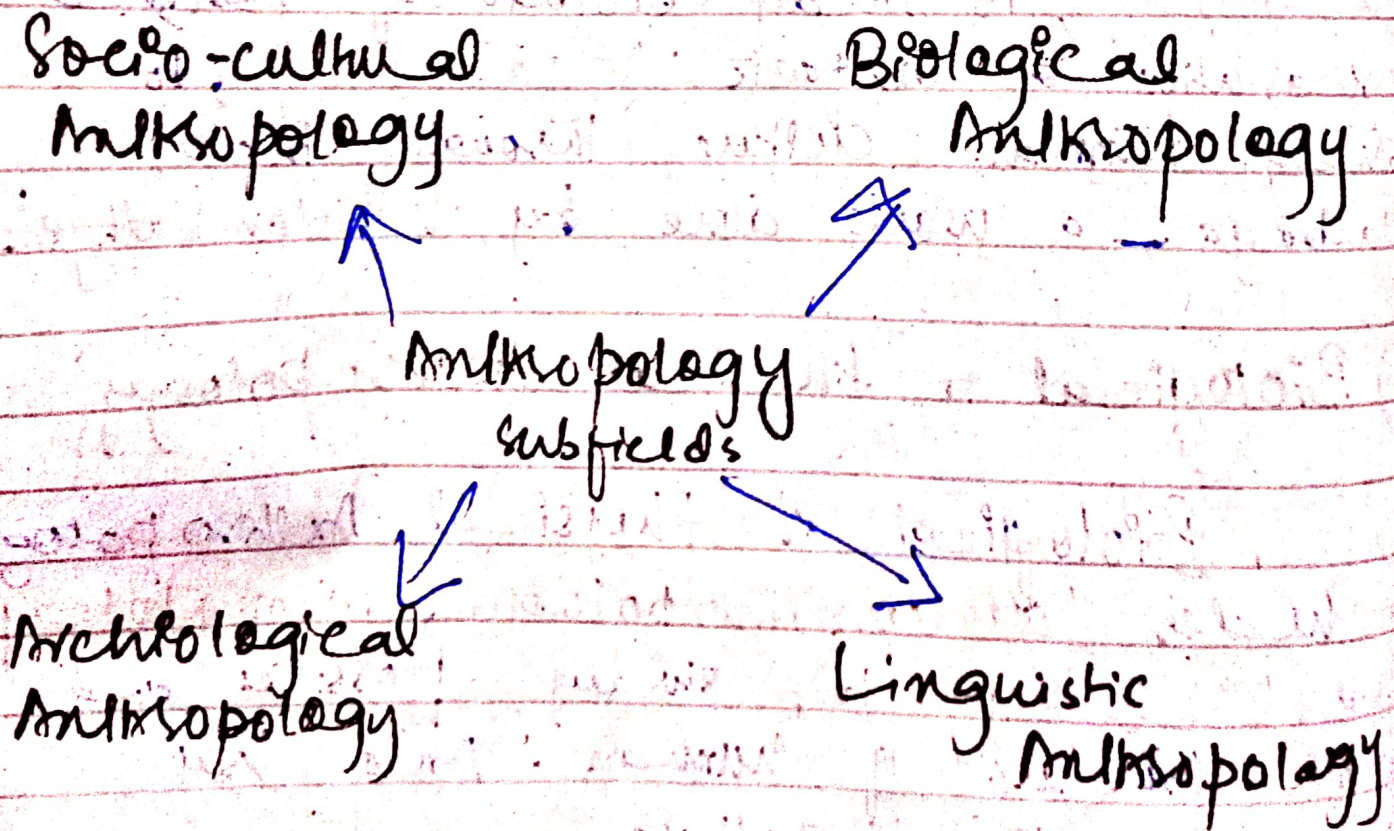 Socio-cultural
Anthropology
Biological
Anthropology
Anthropology
subfields
Archiological
Anthropology
Linguistic
Anthropology